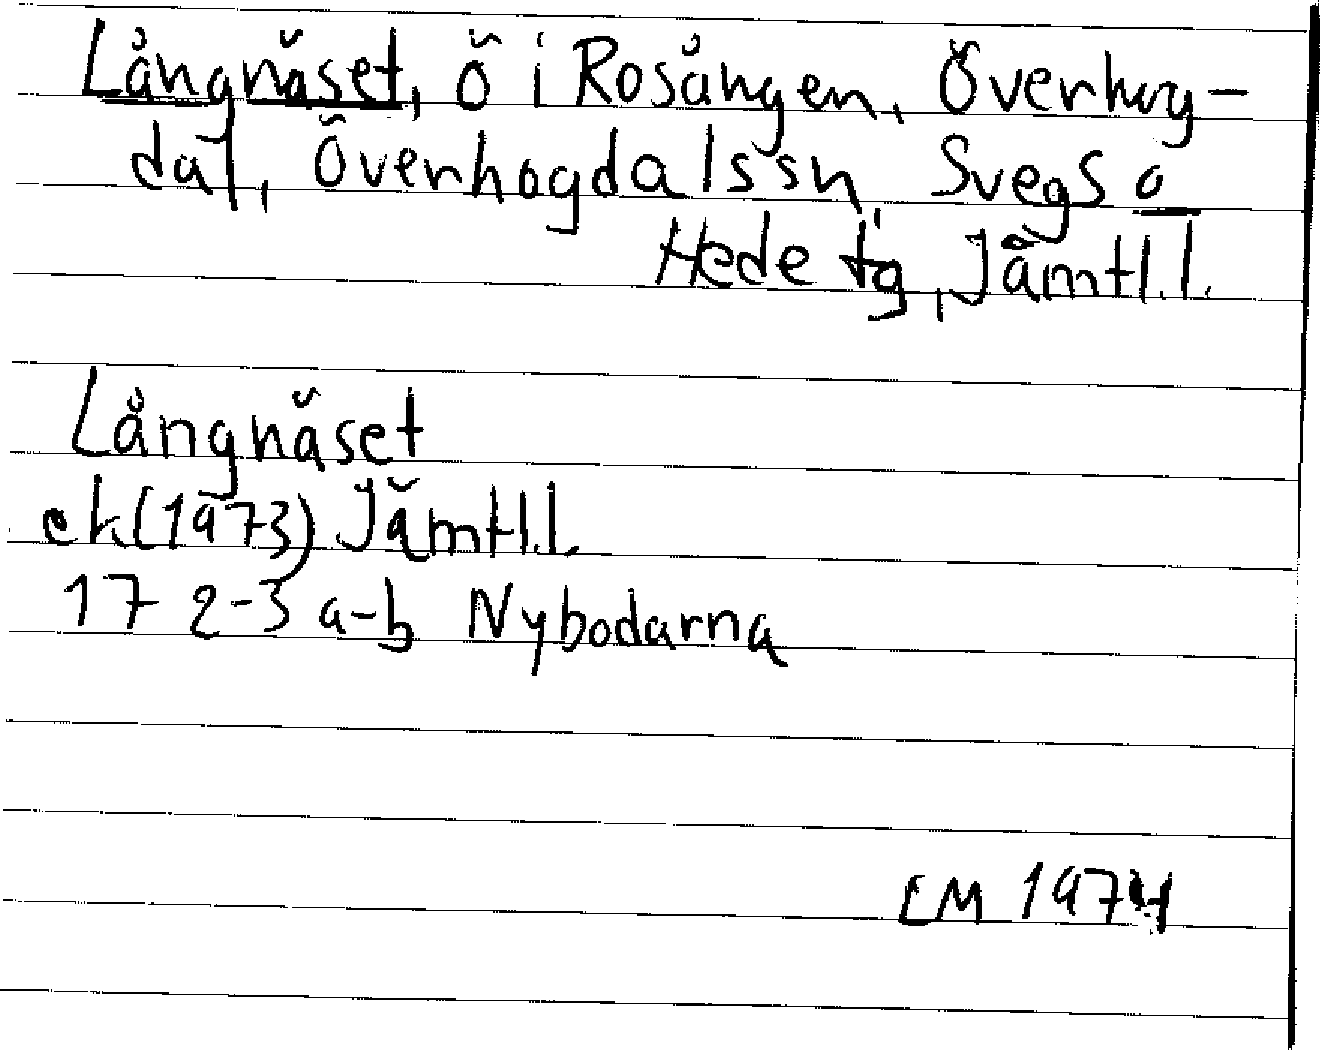 Långnäset, ö i Rosången, Överhog-
dal, Överhogdals sn, Svegs o
Hede tg, Jämtl.l.
Långnäset
ek (1973) Jämtl.l.
17 2-3 a-b Nybodarna
EM 1974